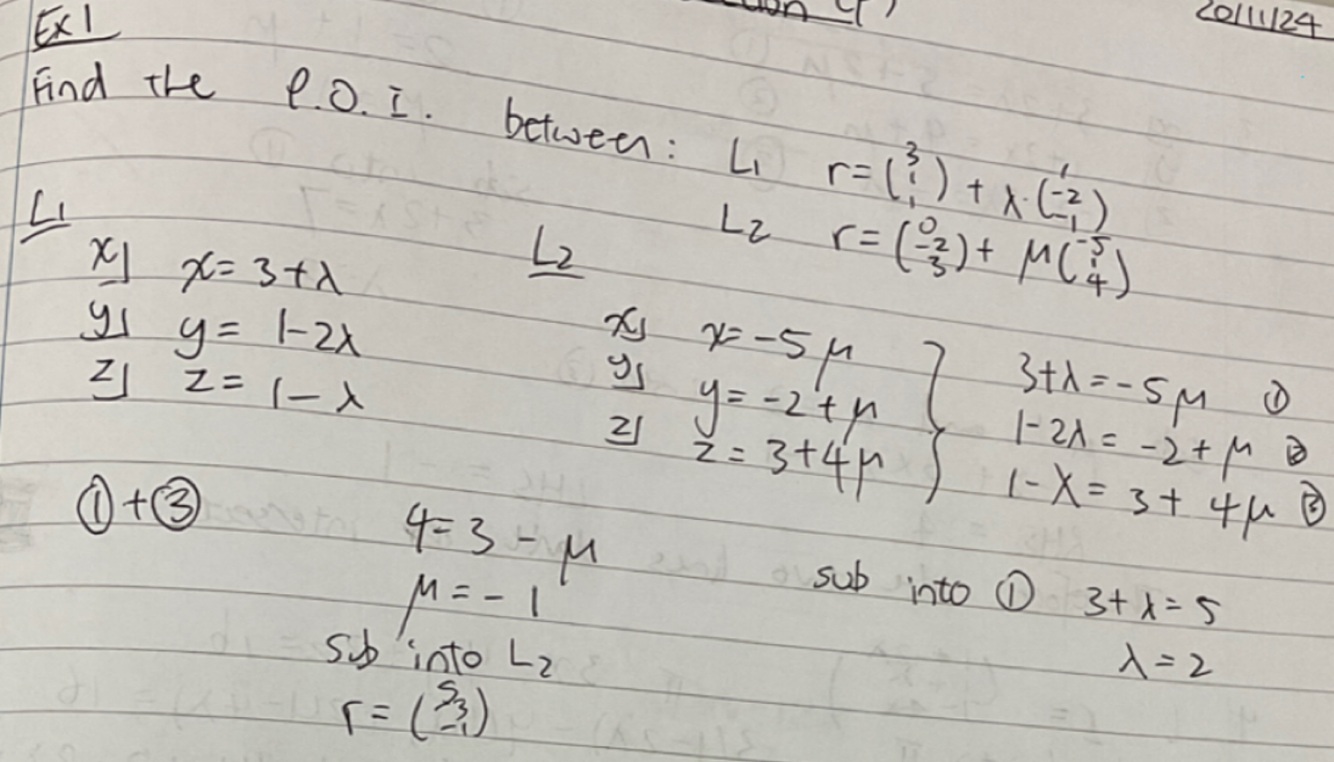 20/11/24
Ex1
Find the P.O.I. between: L1 r=(3 1 1) + λ(1 -2 -1)
L2 r=(0 -2 3) + μ(-5 1 4)
L1
x] x=3+λ
y] y= 1-2λ
z] z= 1-λ
L2
x] x=-5μ
y] y=-2+μ
z] z=3+4μ
3+λ=-5μ ①
1-2λ=-2+μ ②
1-λ=3+4μ ③
①+③ 4=3-μ
μ=-1
sub into L2
r=(5 -3 -1)
sub into ① 3+λ=5
λ=2